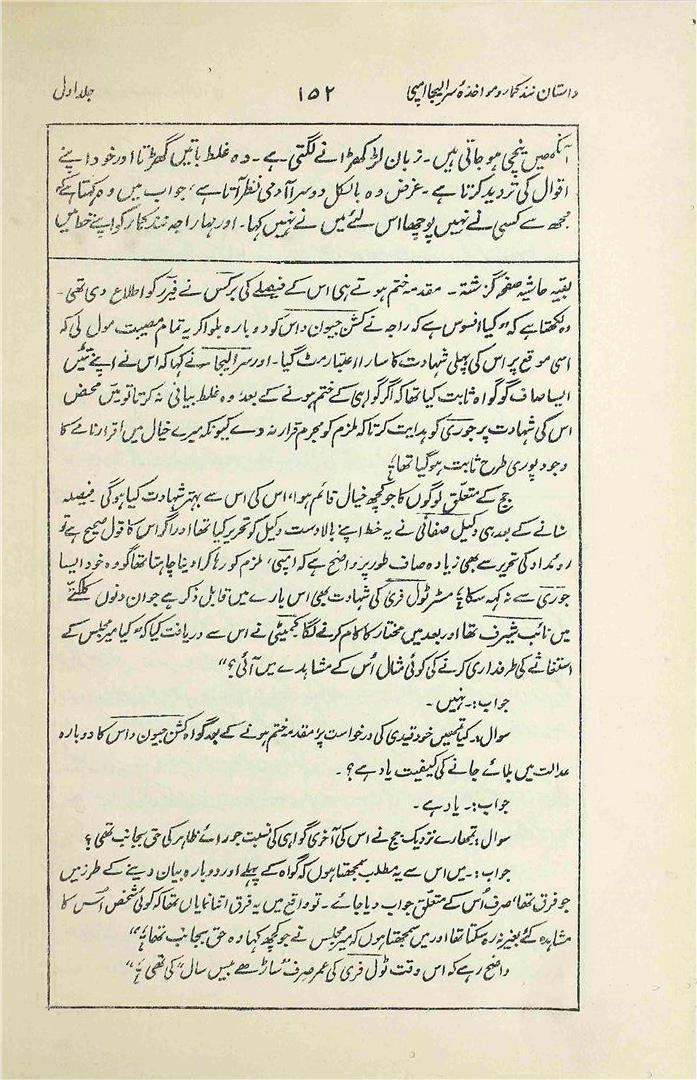 داستان نند کمار و مواخذہ سر الیجا امپی ۱۵۲ جلد اولی
آنکھیں نیچی ہو جاتی ہیں ۔ زبان لڑکھڑانے لگتی ہے ۔ وہ غلط باتیں گھڑتا اور خود اپنے
اقوال کی تردید کرتا ہے ۔ غرض وہ بالکل دوسرا آدمی نظر آتا ہے، جواب میں وہ کہتا ہے کہ
مجھ سے کسی نے نہیں پوچھا اس لئے میں نے نہیں کہا ۔ اور مہاراجہ نند کمار کو اپنے خط میں
بقیہ حاشیہ صفحہ گزشتہ ۔ مقدمہ ختم ہوتے ہی اس کے فیصلے کی برکس نے فیرر کو اطلاع دی تھی ۔
وہ لکھتا ہے کہ "کیا افسوس ہے کہ راجہ نے کشن جیون داس کو دوبارہ بلوا کر یہ تمام مصیبت مول لی کہ
اسی موقع پر اس کی پہلی شہادت کا سارا اعتبار مٹ گیا ۔ اور سر الیجا نے کہا کہ اس نے اپنے تئیں
ایسا صاف گو گواہ ثابت کیا تھا کہ اگر گواہی کے ختم ہونے کے بعد وہ غلط بیانی نہ کرتا تو میں محض
اس کی شہادت پر جوری کو ہدایت کرتا کہ ملزم کو مجرم قرار نہ دے کیونکہ میرے خیال میں اقرار نامے کا
وجود پوری طرح ثابت ہو گیا تھا"
جج کے متعلق لوگوں کا جو کچھ خیال قائم ہوا، اس کی اس سے بہتر شہادت کیا ہو گی ۔ فیصلہ
سنانے کے بعد ہی وکیل صفائی نے یہ خط اپنے بالا دست وکیل کو تحریر کیا تھا اور اگر اس کا قول صحیح ہے تو
روئداد کی تحریر سے بھی زیادہ صاف طور پر واضح ہے کہ امپی، ملزم کو رہا کرا دینا چاہتا تھا گو وہ خود ایسا
جوری سے نہ کہہ سکا، مسٹر ٹول فری کی شہادت بھی اس بارے میں قابل ذکر ہے جو ان دنوں کلکتے
میں نائب شیرف تھا اور بعد میں مختار کا کام کرنے لگا کمیٹی نے اس سے دریافت کیا کہ "کیا میر مجلس کے
استغاثے کی طرفداری کرنے کی کوئی مثال اُس کے مشاہدے میں آئی؟"
جواب :۔ نہیں ۔
سوال :۔ کیا تمہیں خود قیدی کی درخواست پر مقدمہ ختم ہونے کے بعد گواہ کشن جیون داس کا دوبارہ
عدالت میں بلائے جانے کی کیفیت یاد ہے؟ ۔
جواب :۔ یاد ہے ۔
سوال :۔ تمہارے نزدیک جج نے اس کی آخری گواہی کی نسبت جو رائے ظاہر کی حق بجانب تھی؟
جواب :۔ میں اس سے یہ مطلب سمجھتا ہوں کہ گواہ کے پہلے اور دوبارہ بیان دینے کے طرز میں
جو فرق تھا، صرف اُس کے متعلق جواب دیا جائے ۔ تو واقع میں یہ فرق اتنا نمایاں تھا کہ کوئی شخص اُس کا
مشاہدہ کئے بغیر نہ رہ سکتا تھا اور میں سمجھتا ہوں کہ میر مجلس نے جو کچھ کہا وہ حق بجانب تھا"
واضح رہے کہ اس وقت ٹول فری کی عمر صرف "ساڑھے بیس سال" کی تھی"